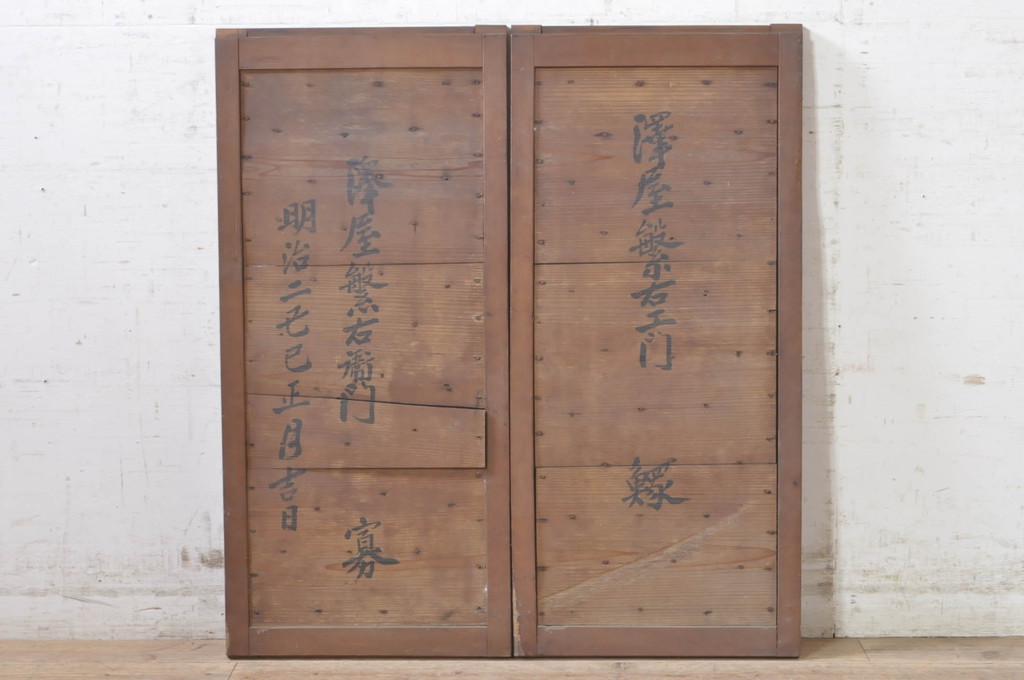 澤屋繁右エ門 鰥
澤屋繁右衛門 寡
明治二年巳正月吉日